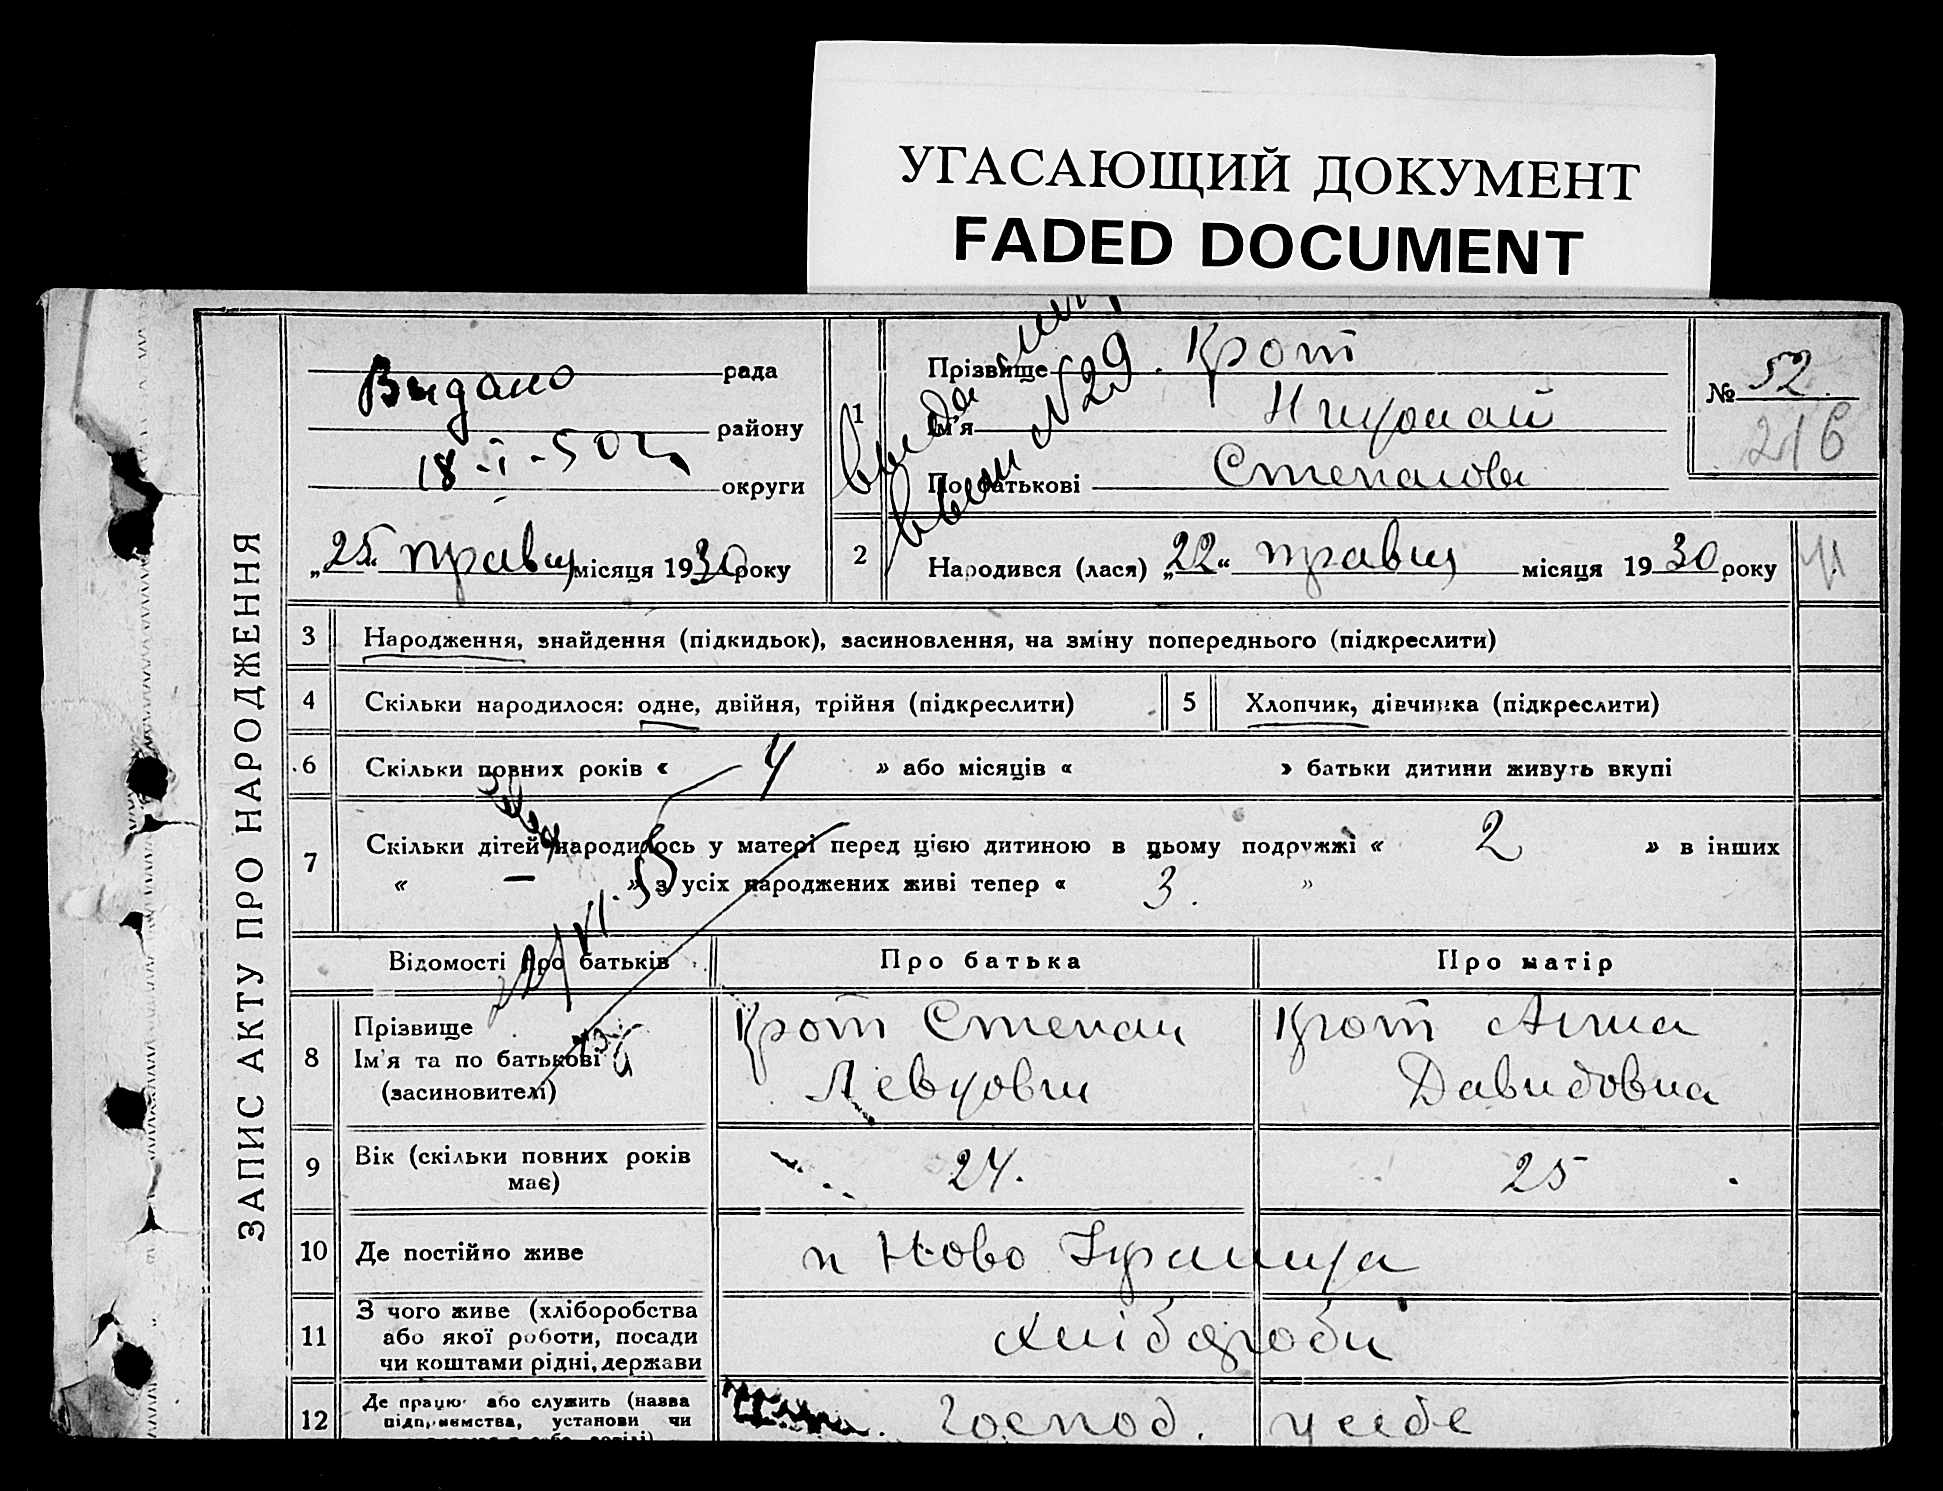 УГАСАЮЩИЙ ДОКУМЕНТ
FADED DOCUMENT
ЗАПИС АКТУ ПРО НАРОДЖЕННЯ
Видано рада
району
18-I-50 округи
„25“ травня місяця 1930 року
1
Прізвище Крот
Ім'я
По батькові Степанова
№ 52.
216
№29
2 Народився (лася) „22“ травня місяця 1930 року
3 Народження, знайдення (підкидьок), засиновлення, на зміну попереднього (підкреслити)
4 Скільки народилося: одне, двійня, трійня (підкреслити) 5 Хлопчик, дівчинка (підкреслити)
6 Скільки повних років « 4 » або місяців « » батьки дитини живуть вкупі
7 Скільки дітей народилось у матері перед цією дитиною в цьому подружжі « 2 » в інших
« – » з усіх народжених живі тепер « 3. »
Відомості про батьків Про батька Про матір
8
Прізвище Крот Степан Крот Анна
Ім'я та по батькові Давидовна
(засновителі)
9 Вік (скільки повних років 24. 25
має)
10 Де постійно живе Ново
11
З чого живе (хліборобства
або якої роботи, посади
чи коштами рідні, держави
12
Де працює або служить (назва
підприємства, установи чи
Господ. у себе